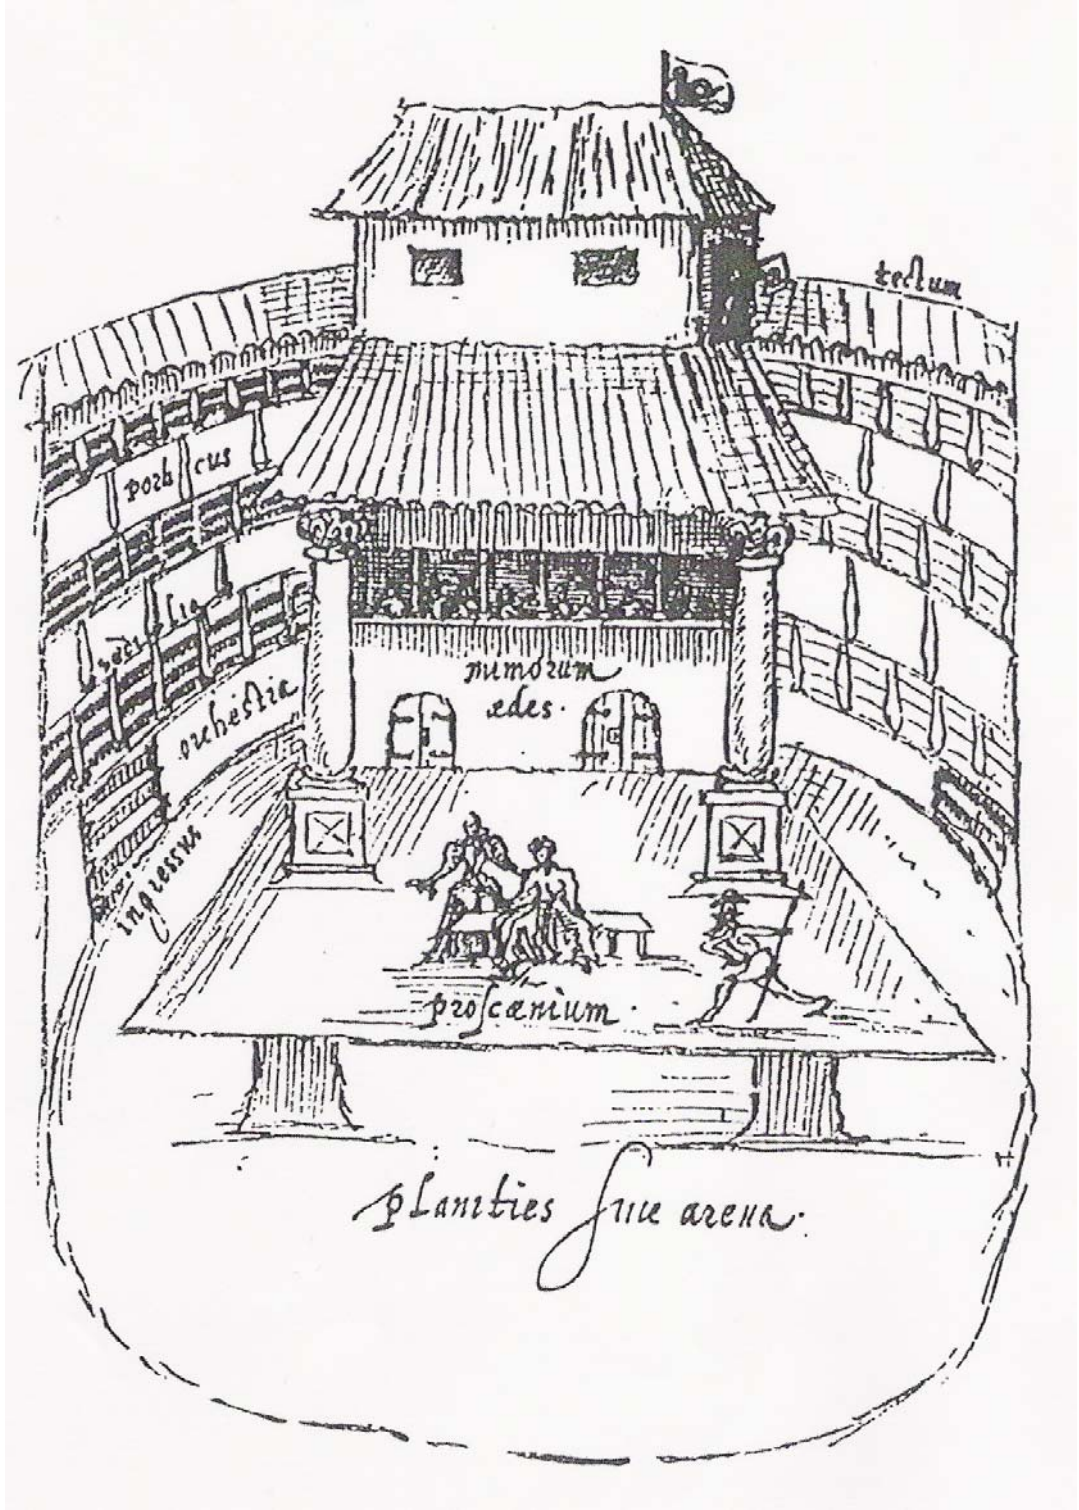 tectum
porticus
sedilia
orchestra
mimorum
ædes.
ingressus
proscænium.
planities sive arena.